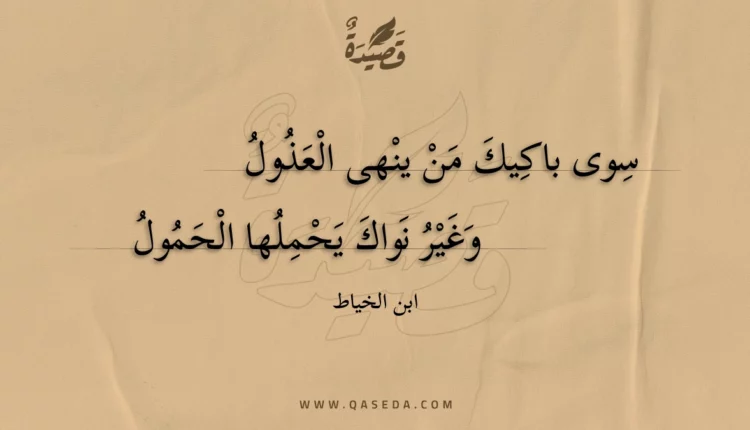 قَصِيدَةٌ
سِوى باكِيكَ مَنْ ينْهى الْعَذُولُ
وَغَيْرُ نَواكَ يَحْمِلُها الْحَمُولُ
ابن الخياط
WWW.QASEDA.COM